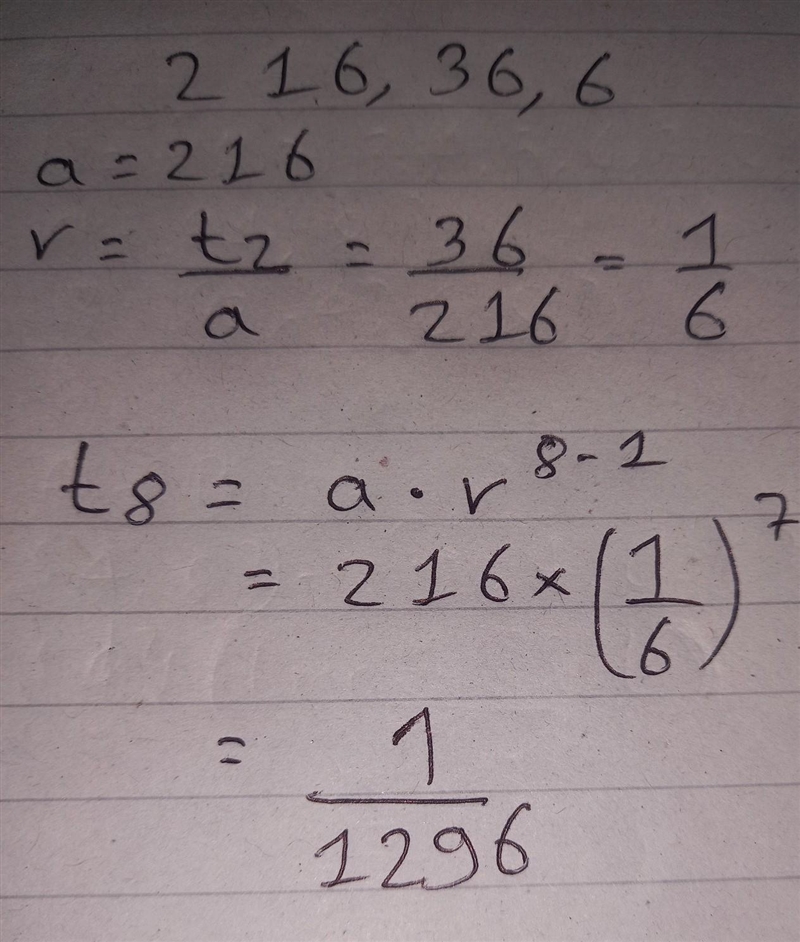 216, 36, 6
a = 216
r = t2/a = 36/216 = 1/6
t8 = a · r^8-1
= 216 × (1/6)^7
= 1/1296